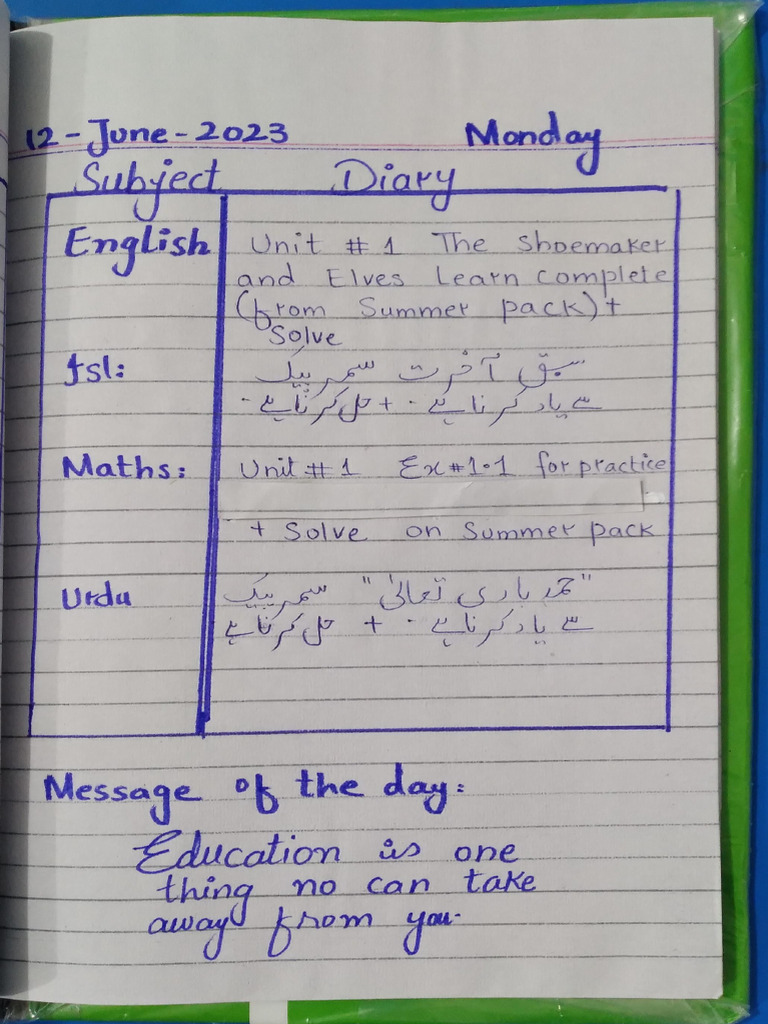 12-June-2023 Monday
Subject Diary
English Unit # 1 The Shoemaker
and Elves Learn complete
(from Summer pack) +
Solve
Isl: سبق آخرت سمر پیک
سے یاد کرنا ہے ۔ + حل کرنا ہے ۔
Maths: Unit # 1 Ex # 1.1 for practice
+ Solve on Summer pack
Urdu "حمد باری تعالیٰ" سمر پیک
سے یاد کرنا ہے ۔ + حل کرنا ہے
Message of the day:
Education is one
thing no can take
away from you.